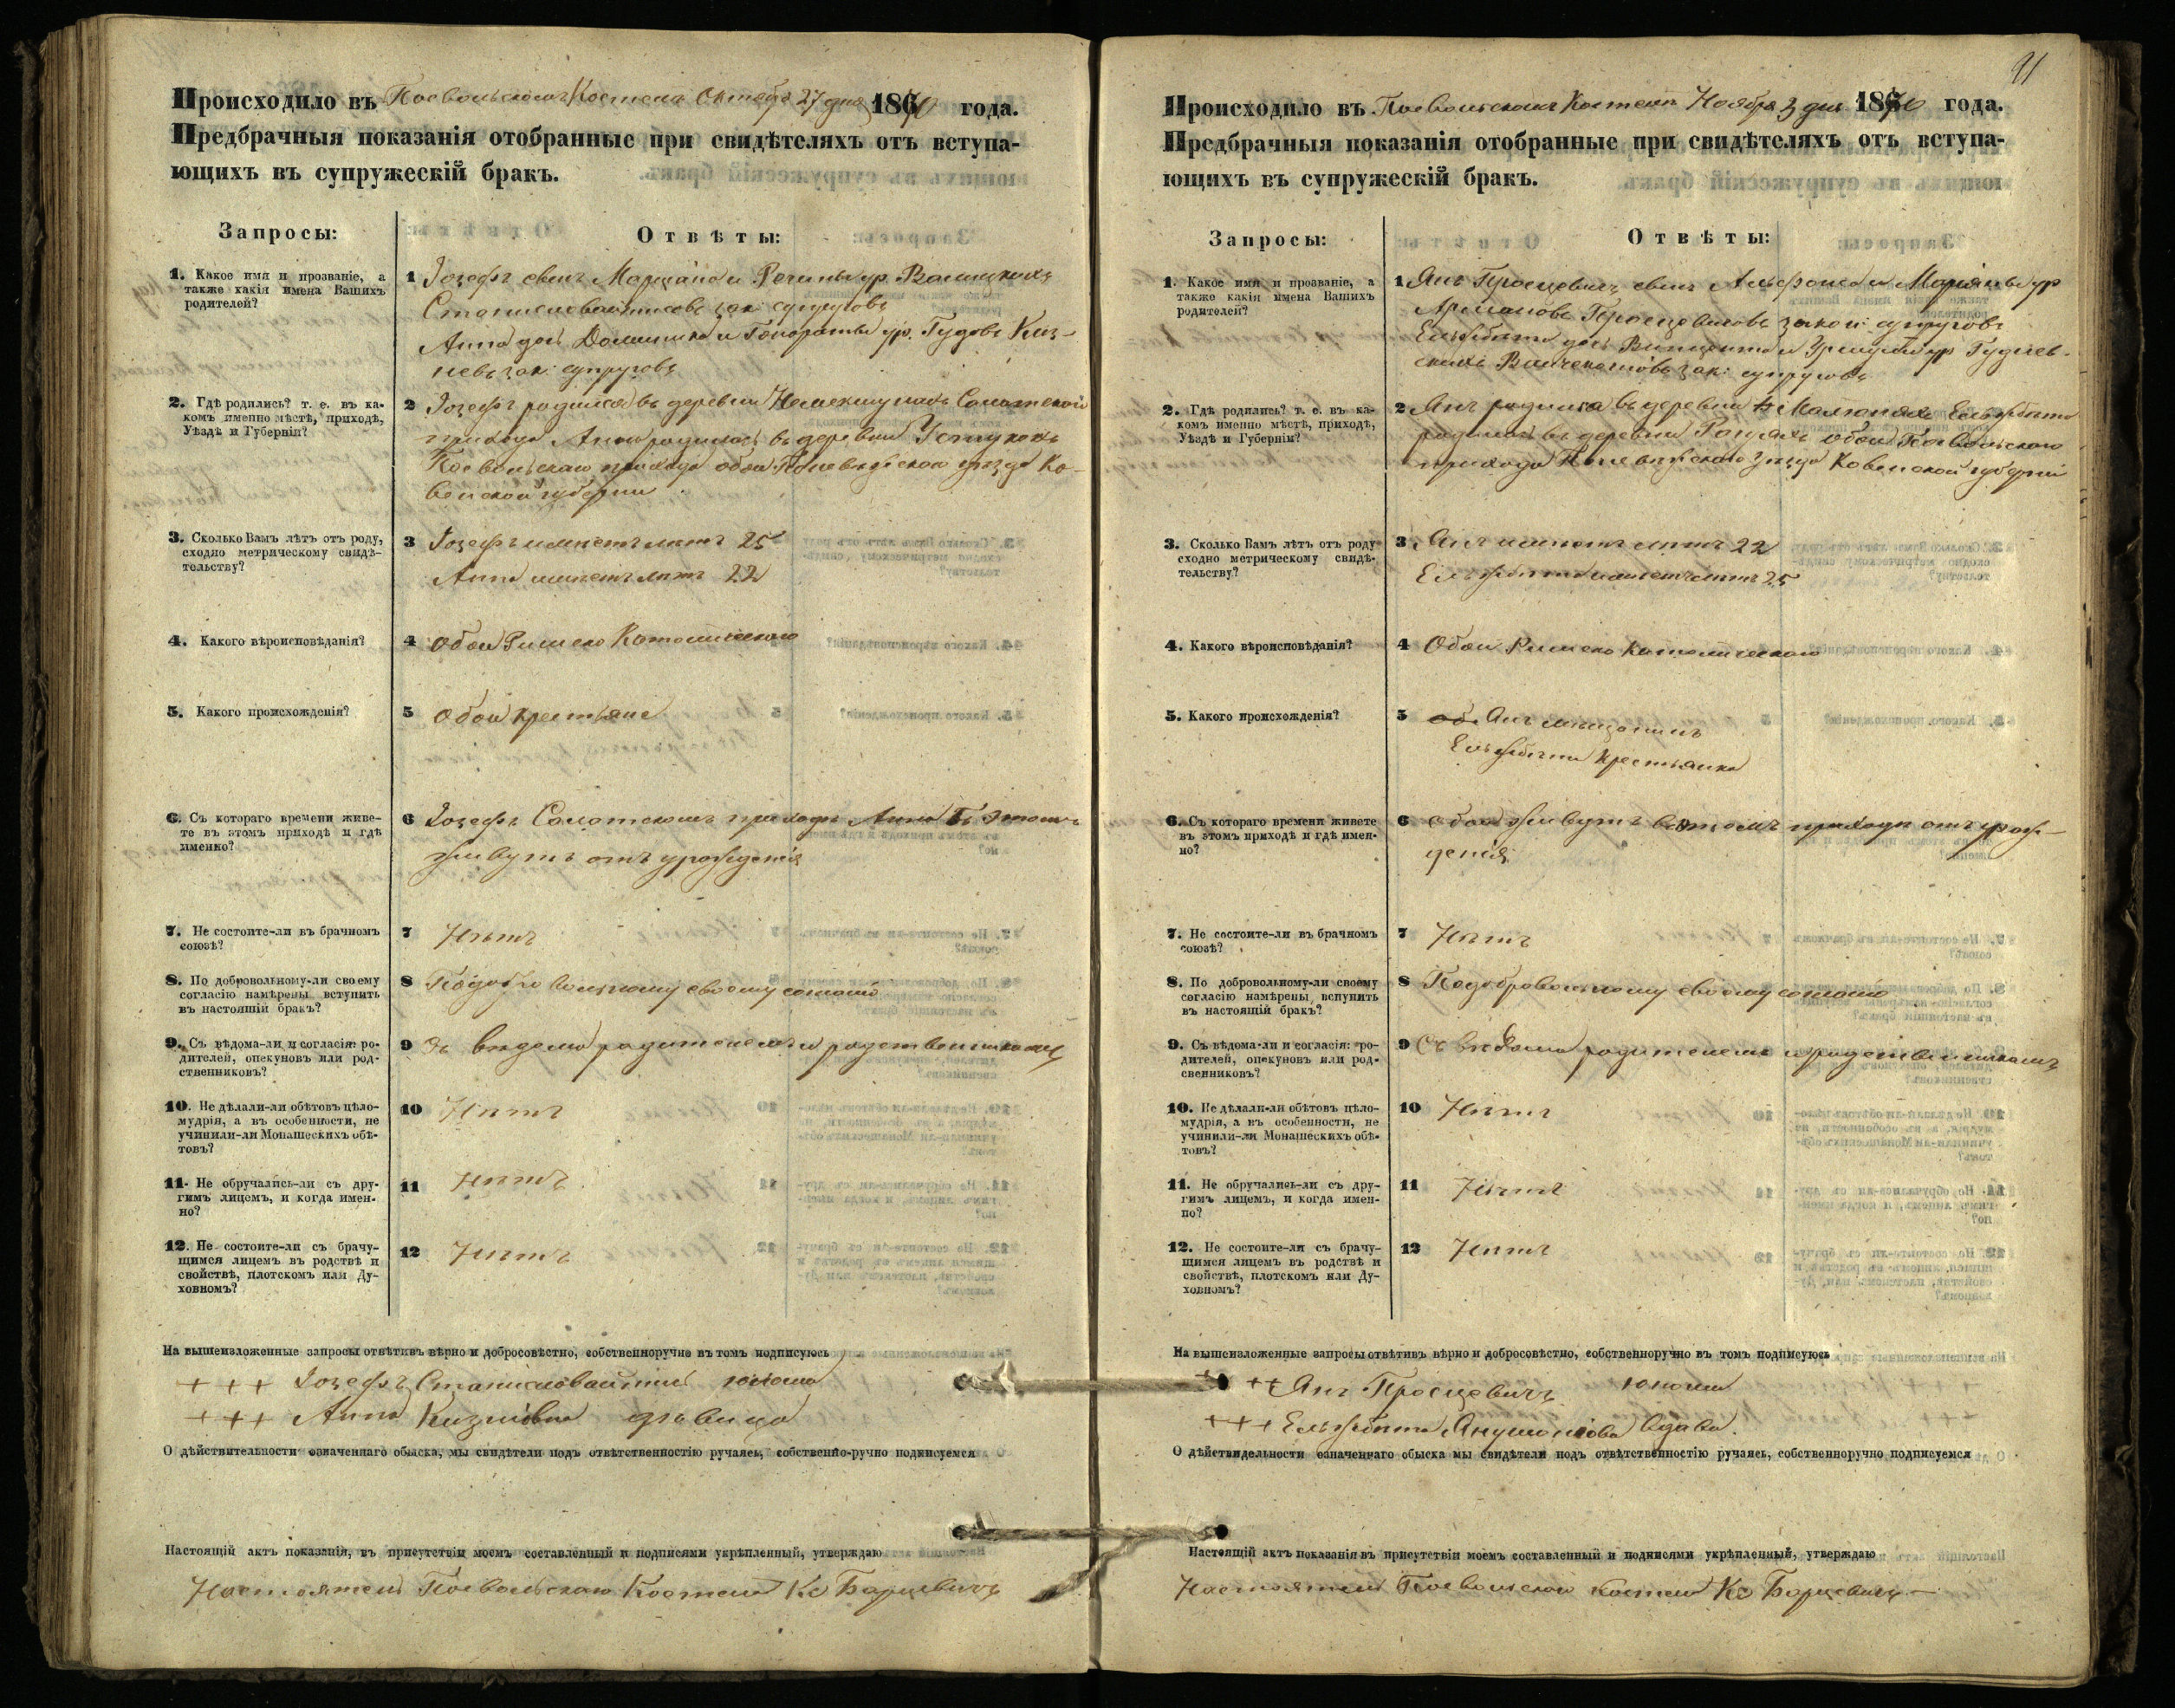 Происходило въ Поевольскомъ Костелѣ Октября 27 дня 1870 года.
Предбрачныя показанія отобранные при свидѣтеляхъ отъ вступа-
ющихъ въ супружескій бракъ.
Запросы:
Отвѣты:
1. Какое имя и прозваніе, а
также какія имена Вашихъ
родителей?
1 Іозефъ сынъ Марціана и Регины ур.
зак: супруговъ
Анна дочь Доминика и Гонораты ур. Гудовъ Киз-
невъ зак: супруговъ
2. Гдѣ родились? т. е. въ ка-
комъ именно мѣстѣ, приходѣ,
Уѣздѣ и Губерніи?
2 Іозефъ родился въ деревни
прихода Анна родилась въ деревни
Поевольскаго прихода обои Поневѣжскаго уѣзда Ко-
венской губерни
3. Сколько Вамъ лѣтъ отъ роду,
сходно метрическому свидѣ-
тельству?
3 Іозефъ имѣетъ лѣтъ 25
Анна имѣетъ лѣтъ 22
4. Какого вѣроисповѣданія?
4 Обои Римско Католическаго
5. Какого происхожденія?
5 Обои крестьяне
6. Съ котораго времени живе-
те въ этомъ приходѣ и гдѣ
именно?
6 Іозефъ приходѣ Анна въ этомъ
живутъ отъ урожденія
7. Не состоите-ли въ брачномъ
союзѣ?
7 Нѣтъ
8. По добровольному-ли своему
согласію намѣрены вступить
въ настоящій бракъ?
8 По добровольному своему согласію
9. Съ вѣдома-ли и согласія: ро-
дителей, опекуновъ или род-
ственниковъ?
9 Съ вѣдома родителемъ и родственникамъ
10. Не дѣлали-ли обѣтовъ цѣло-
мудрія, а въ особенности, не
учинили-ли Монашескихъ обѣ-
товъ?
10 Нѣтъ
11. Не обручались-ли съ дру-
гимъ лицемъ, и когда имен-
но?
11 Нѣтъ
12. Не состоите-ли съ брачу-
щимся лицемъ въ родствѣ и
свойствѣ, плотскомъ или Ду-
ховномъ?
12 Нѣтъ
На вышеизложенные запросы отвѣтивъ вѣрно и добросовѣстно, собственноручно въ томъ подписуюсь
+ + + Іозефъ юноша
+ + + Анна Кизновна дѣвица
О дѣйствительности означеннаго обыска, мы свидѣтели подъ отвѣтственностію ручаясь, собственно-ручно подписуемся
Настоящій актъ показанія, въ присутствіи моемъ составленный и подписями укрѣпленный, утверждаю
Настоятель Поевольскаго Костела Кс Барцевичъ
91
Происходило въ Поевольскомъ Костелѣ Ноября 3 дня 1870 года.
Предбрачныя показанія отобранные при свидѣтеляхъ отъ вступа-
ющихъ въ супружескій бракъ.
Запросы:
Отвѣты:
1. Какое имя и прозваніе, а
также какія имена Вашихъ
родителей?
1 Янъ Просцевичъ сынъ Альфонса и Маріяны ур
Просцевичовъ закон: супруговъ
Ельжбета дочь Винцента и Уршули ур
зак: супруговъ
2. Гдѣ родились? т. е. въ ка-
комъ именно мѣстѣ, приходѣ,
Уѣздѣ и Губерніи?
2 Янъ родился въ деревни Ельжбета
родилась въ деревни обои Поевольскаго
прихода Поневѣжскаго уѣзда Ковенской губерніи
3. Сколько Вамъ лѣтъ отъ роду
сходно метрическому свидѣ-
тельству?
3 Янъ имѣетъ лѣтъ 22
Ельжбета имѣетъ лѣтъ 25
4. Какого вѣроисповѣданія?
4 Обои Римско Католическаго
5. Какого происхожденія?
5 Янъ мѣщанинъ
Ельжбета крестьянка
6. Съ котораго времени живете
въ этомъ приходѣ и гдѣ имен-
но?
6 Обои живутъ въ этомъ приходѣ отъ урож-
денія
7. Не состоите-ли въ брачномъ
союзѣ?
7 Нѣтъ
8. По добровольному-ли своему
согласію намѣрены вспупить
въ настоящій бракъ?
8 По добровольному своему согласію
9. Съ вѣдома-ли и согласія: ро-
дителей, опекуновъ или род-
свенниковъ?
9 Съ вѣдома родителемъ и родственникамъ
10. Не дѣлали-ли обѣтовъ цѣло-
мудрія, а въ особенности, не
учинили-ли Монашескихъ обѣ-
товъ?
10 Нѣтъ
11. Не обручались-ли съ дру-
гимъ лицемъ, и когда имен-
но?
11 Нѣтъ
12. Не состоите-ли съ брачу-
щимся лицемъ въ родствѣ и
свойствѣ, плотскомъ или Ду-
ховномъ?
12 Нѣтъ
На вышеизложенные запросы отвѣтивъ вѣрно и добросовѣстно, собственноручно въ томъ подписуюсь
+ ++ Янъ Просцевичъ юноша
+++ Ельжбета вдова.
О дѣйствидельности означеннаго обыска мы свидѣтели подъ отвѣтственностію ручаясь, собственноручно подписуемся
Настоящій актъ показанія въ присутствіи моемъ составленный и подписями укрѣпленный, утверждаю
Настоятель Поевольскаго Костела Кс Барцевичъ